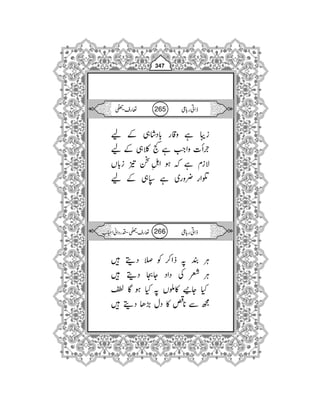 347
ذاتی رباعی 265 تعارف
زیبا ہے وقار بادشاہی کے لیے
جرأت واجب ہے کج کلاہی کے لیے
لازم ہے کہ ہو اہلِ سخن تیز زباں
تلوار ضروری ہے سپاہی کے لیے
ذاتی رباعی 266 تعارف
ہر بند پہ ذاکر کو صلا دیتے ہیں
ہر شعر کی داد جابجا دیتے ہیں
کیا جانیے کاملوں پہ کیا ہو گا لطف
مجھ سے ناقص کا دل بڑھا دیتے ہیں